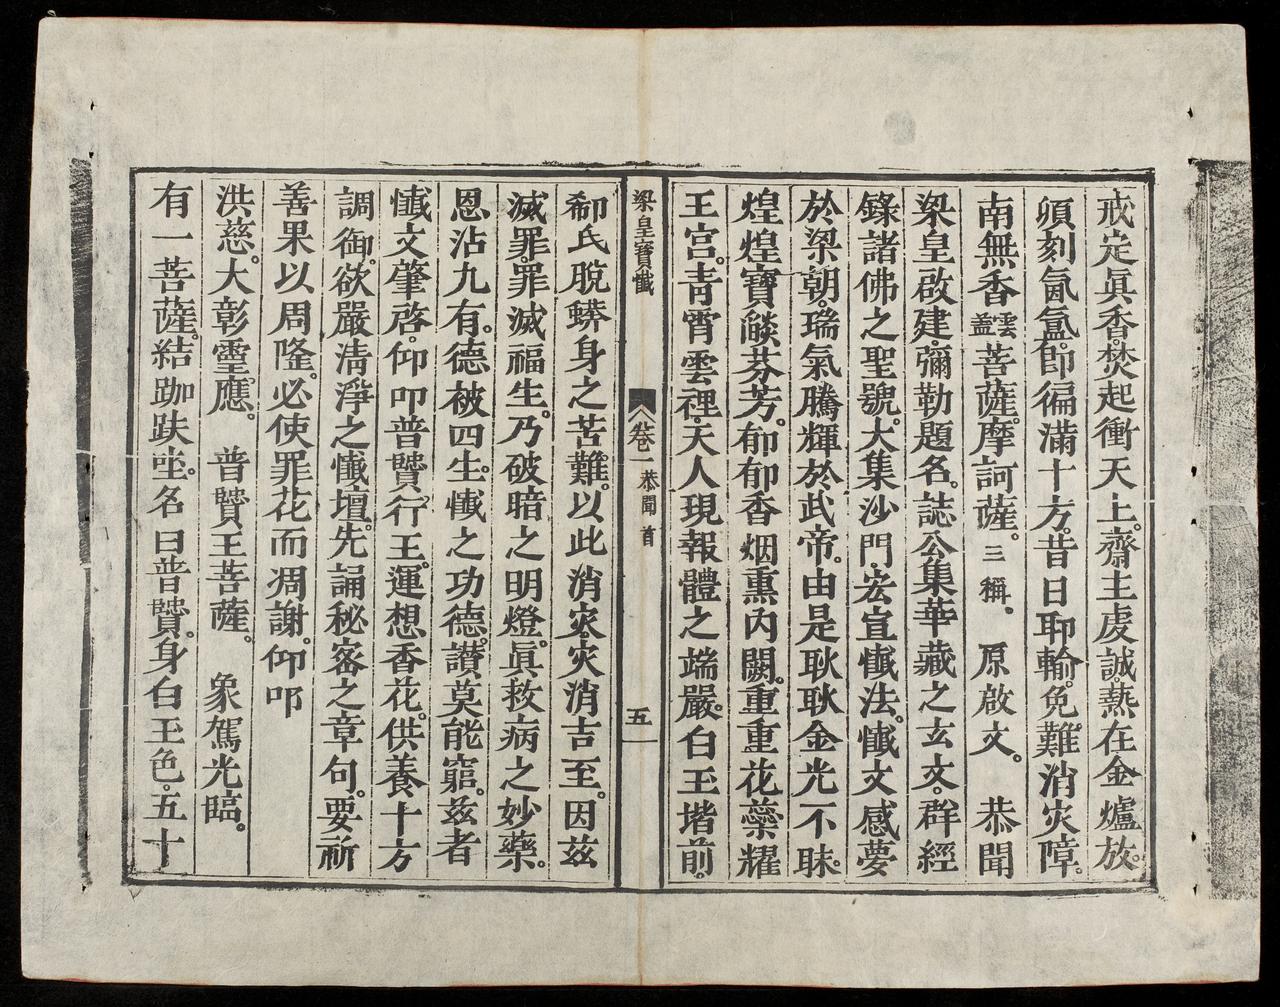 戒定眞香。焚起衝天上。齋主虔誠。爇在金爐放。
頃刻氤氳。卽徧滿十方。昔日耶輸。免難消灾障。
南無香雲蓋菩薩。摩訶薩。三稱。　原啟文。　恭聞
梁皇啟建。彌勒題名。誌公集華藏之玄文。群經
錄諸佛之聖號。大集沙門。宏宣懴法。懴文感夢
於梁朝。瑞氣騰輝於武帝。由是耿耿金光不昧。
煌煌寶燄芬芳。郁郁香烟熏內闕。重重花蘂耀
王宮。靑霄雲裡。天人現報體之端嚴。白玉堦前。
梁皇寶懴　卷一　恭聞　首　五
郗氏脫蟒身之苦難。以此消灾。灾消吉至。因茲
滅罪。罪滅福生。乃破暗之明燈。眞救病之妙藥。
恩沾九有。德被四生。懴之功德。讃莫能窮。茲者
懴文肇啓。仰叩普贒行王。運想香花。供養十方
調御。欲嚴淸淨之懴壇。先誦秘宻之章句。要祈
善果以周隆。必使罪花而凋謝。仰叩
洪慈。大彰𩆜應。　普贒王菩薩。　象駕光臨。
有一菩薩。結跏趺坐。名曰普贒。身白玉色。五十